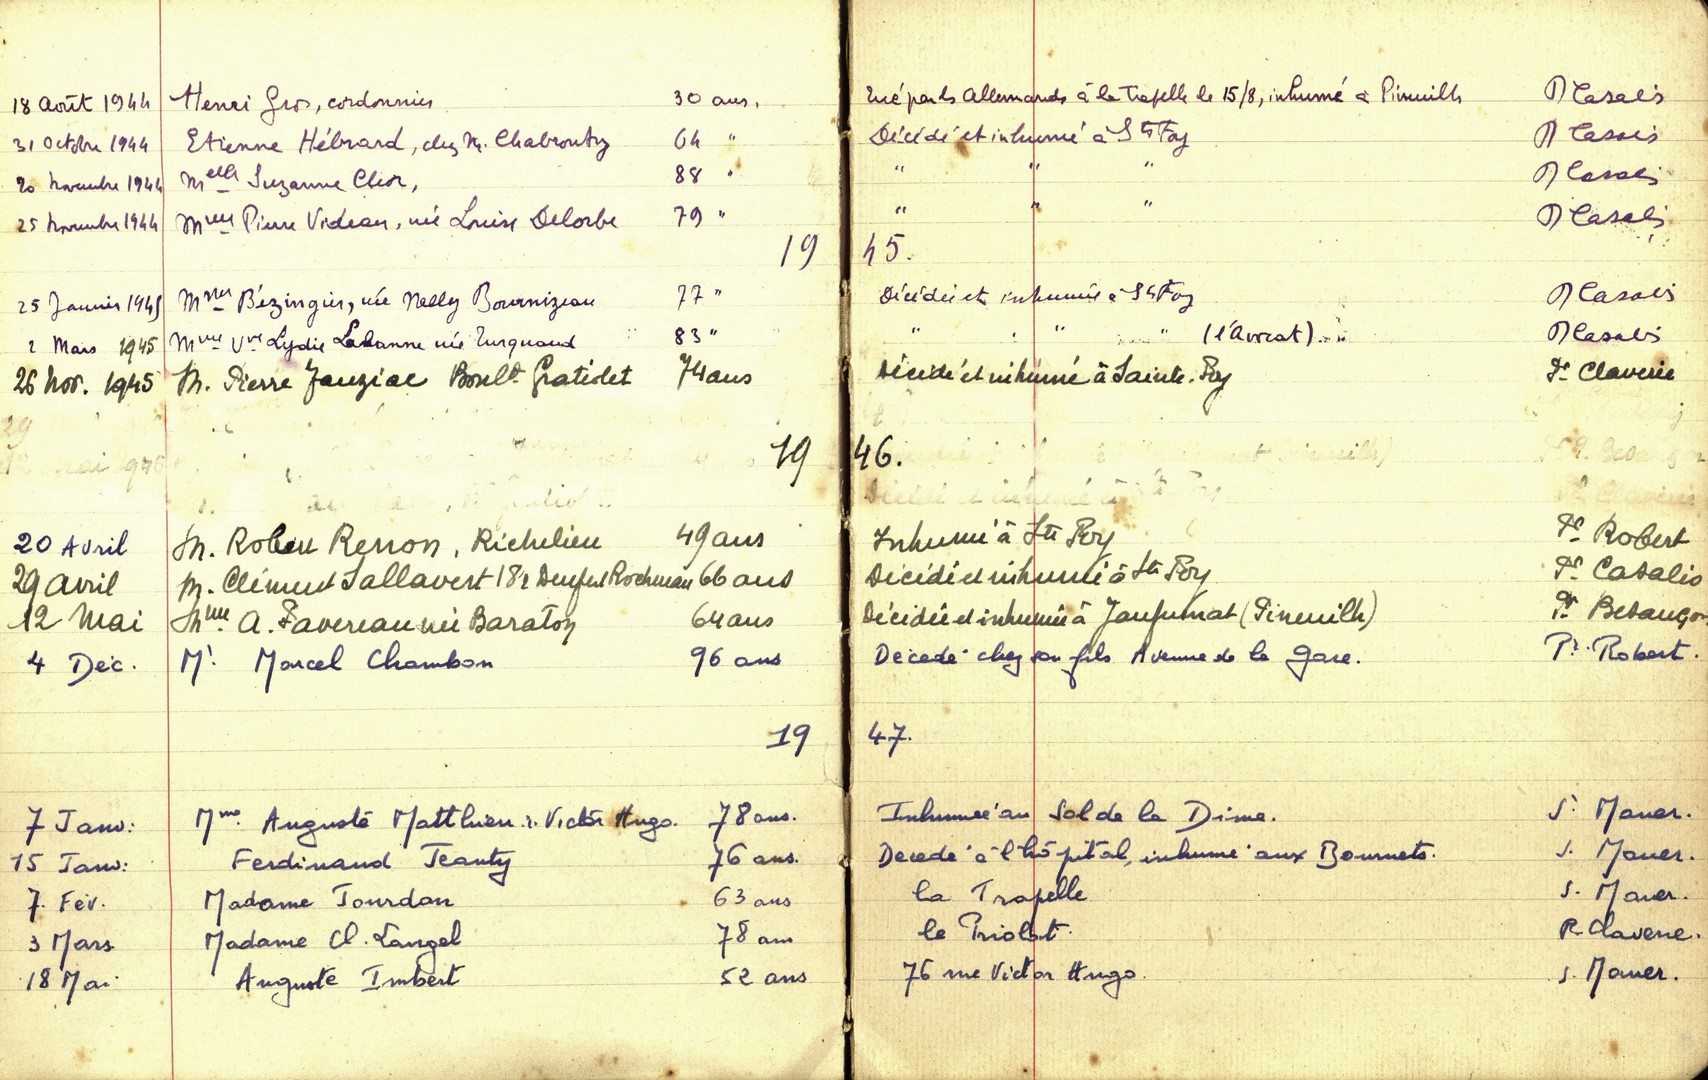 18 Août 1944 Henri Gros, cordonnier 30 ans. Tué par les Allemands à la Trapelle le 15/8, inhumé à Pineuilh P Casalis
31 Octobre 1944 Etienne Hébrard, chez M. Chabrouty 64 " Décédé et inhumé à Ste Foy P Casalis
20 Novembre 1944 Melle Suzanne Clior, 88 " " " " P Casalis
25 Novembre 1944 Mme Pierre Videau, née Louise Delorbe 79 " " " " P Casalis
19 45.
25 Janvier 1945 Mme Bézingier, née Nelly Bournizeau 77 " Décédée et inhumée à Ste Foy P Casalis
2 Mars 1945 Mme Vve Lydie Labanne née Turquand 83 " " " " (l'Avocat) P Casalis
26 Nov. 1945 M. Pierre Jauziac Bould Gratiolet 74 ans Décédé et inhumé à Sainte-Foy Pr Claverie
19 46.
20 Avril M. Robert Renon, Richelieu 49 ans Inhumé à Ste Foy Pr Robert
29 Avril M. Clément Sallavert 18 r Denfert Rochereau 66 ans Décédé et inhumé à Ste Foy Pr Casalis
12 Mai Mme A. Favereau née Baraton 64 ans Décédée et inhumée à (Pineuilh) Pr Besançon
4 Déc. Mr. Marcel Chambon 96 ans Décédé chez son fils Avenue de la Gare. Pr. Robert.
19 47.
7 Janv: Mme Auguste Matthieu r. Victor Hugo. 78 ans. Inhumée au Sol de la Dime. S. Mauer.
15 Janv: Ferdinand Jeanty 76 ans. Décédé à l'hôpital, inhumé aux Bournets. S. Mauer.
7 Fév. Madame Jourdan 63 ans la Trapelle S. Mauer.
3 Mars Madame Cl. Langel 78 ans le Priolat. P. Claverie.
18 Mai Auguste Imbert 52 ans 76 rue Victor Hugo. S. Mauer.